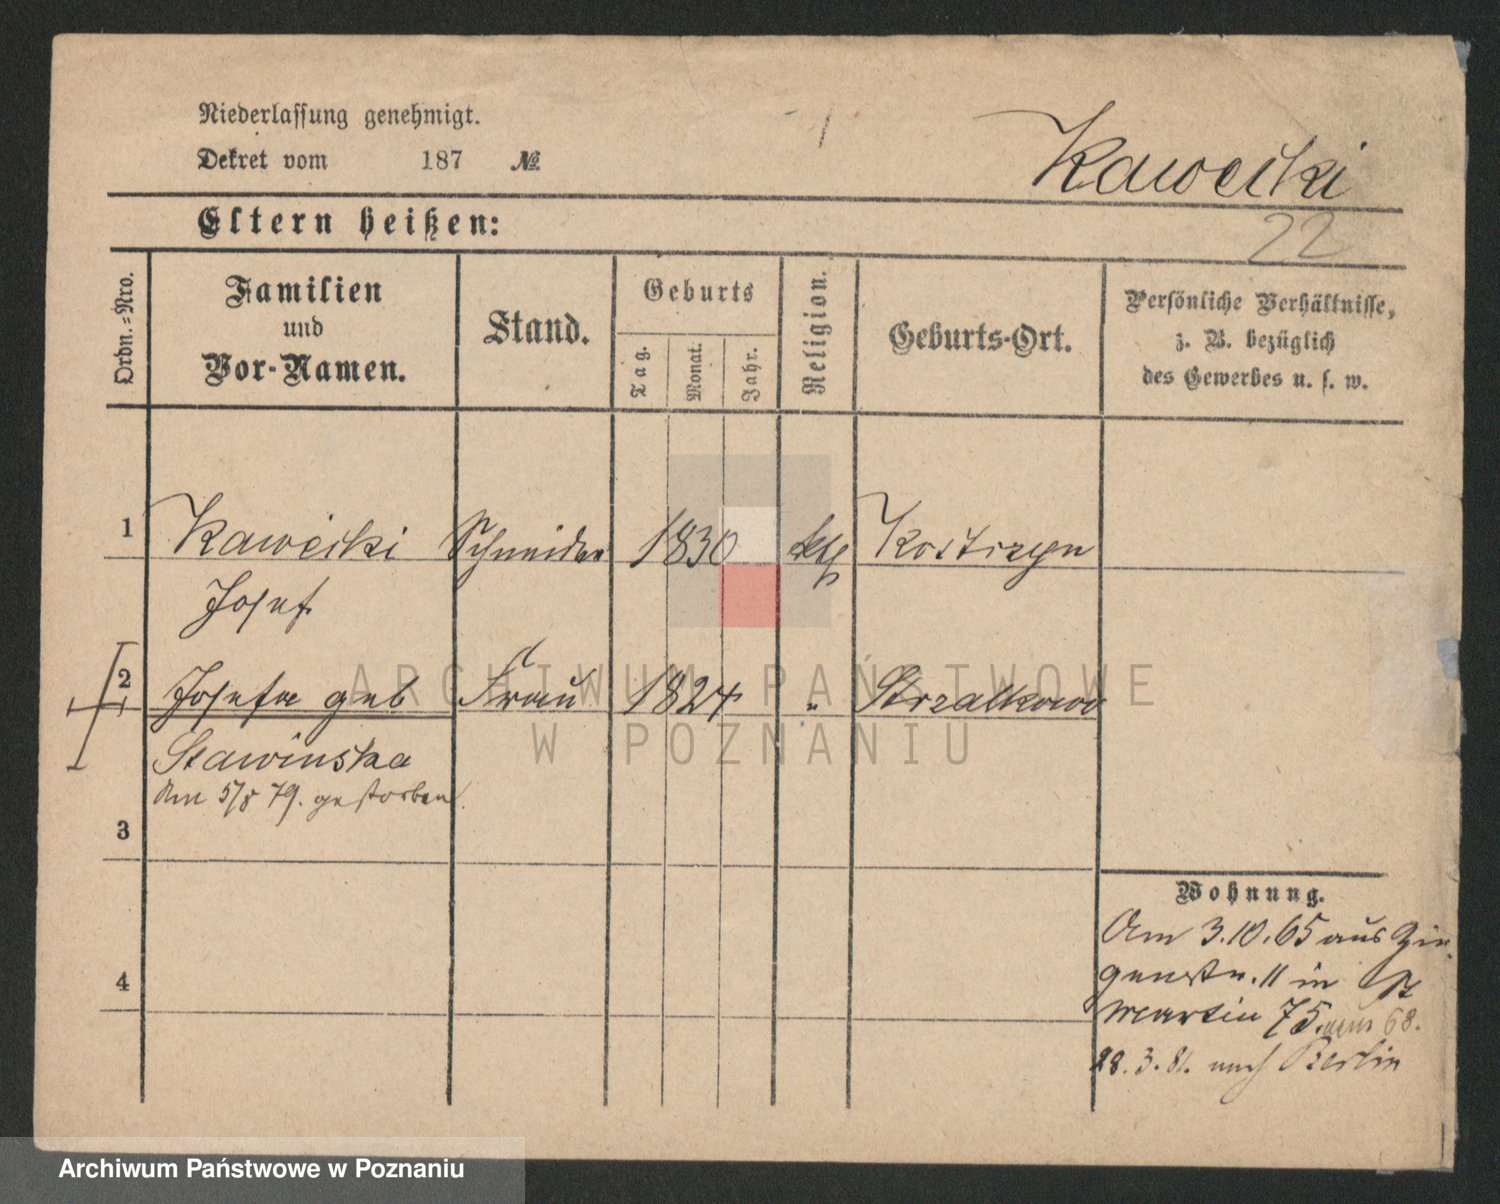 Niederlassung genehmigt.
Dekret vom 187 №
Kawecki
22
Eltern heißen:
Ordn.-Nro.
Familien
und
Vor-Namen.
Stand.
Geburts
Tag.
Monat.
Jahr.
Religion.
Geburts-Ort.
Persönliche Verhältnisse,
z. B. bezüglich
des Gewerbes u. s. w.
1 Kawecki Schneider 1830 kth Kostrzyn
Josef
2 Josefa geb Frau 1824 " Strzalkowo
Stawinska
Am 5/8 79. gestorben.
3
4
Wohnung.
Am 3.10.65 aus Zie-
genstr. 11 in St
Martin 75. 68.
28.3.81. nach Berlin
ARCHIWUM PAŃSTWOWE
W POZNANIU
Archiwum Państwowe w Poznaniu